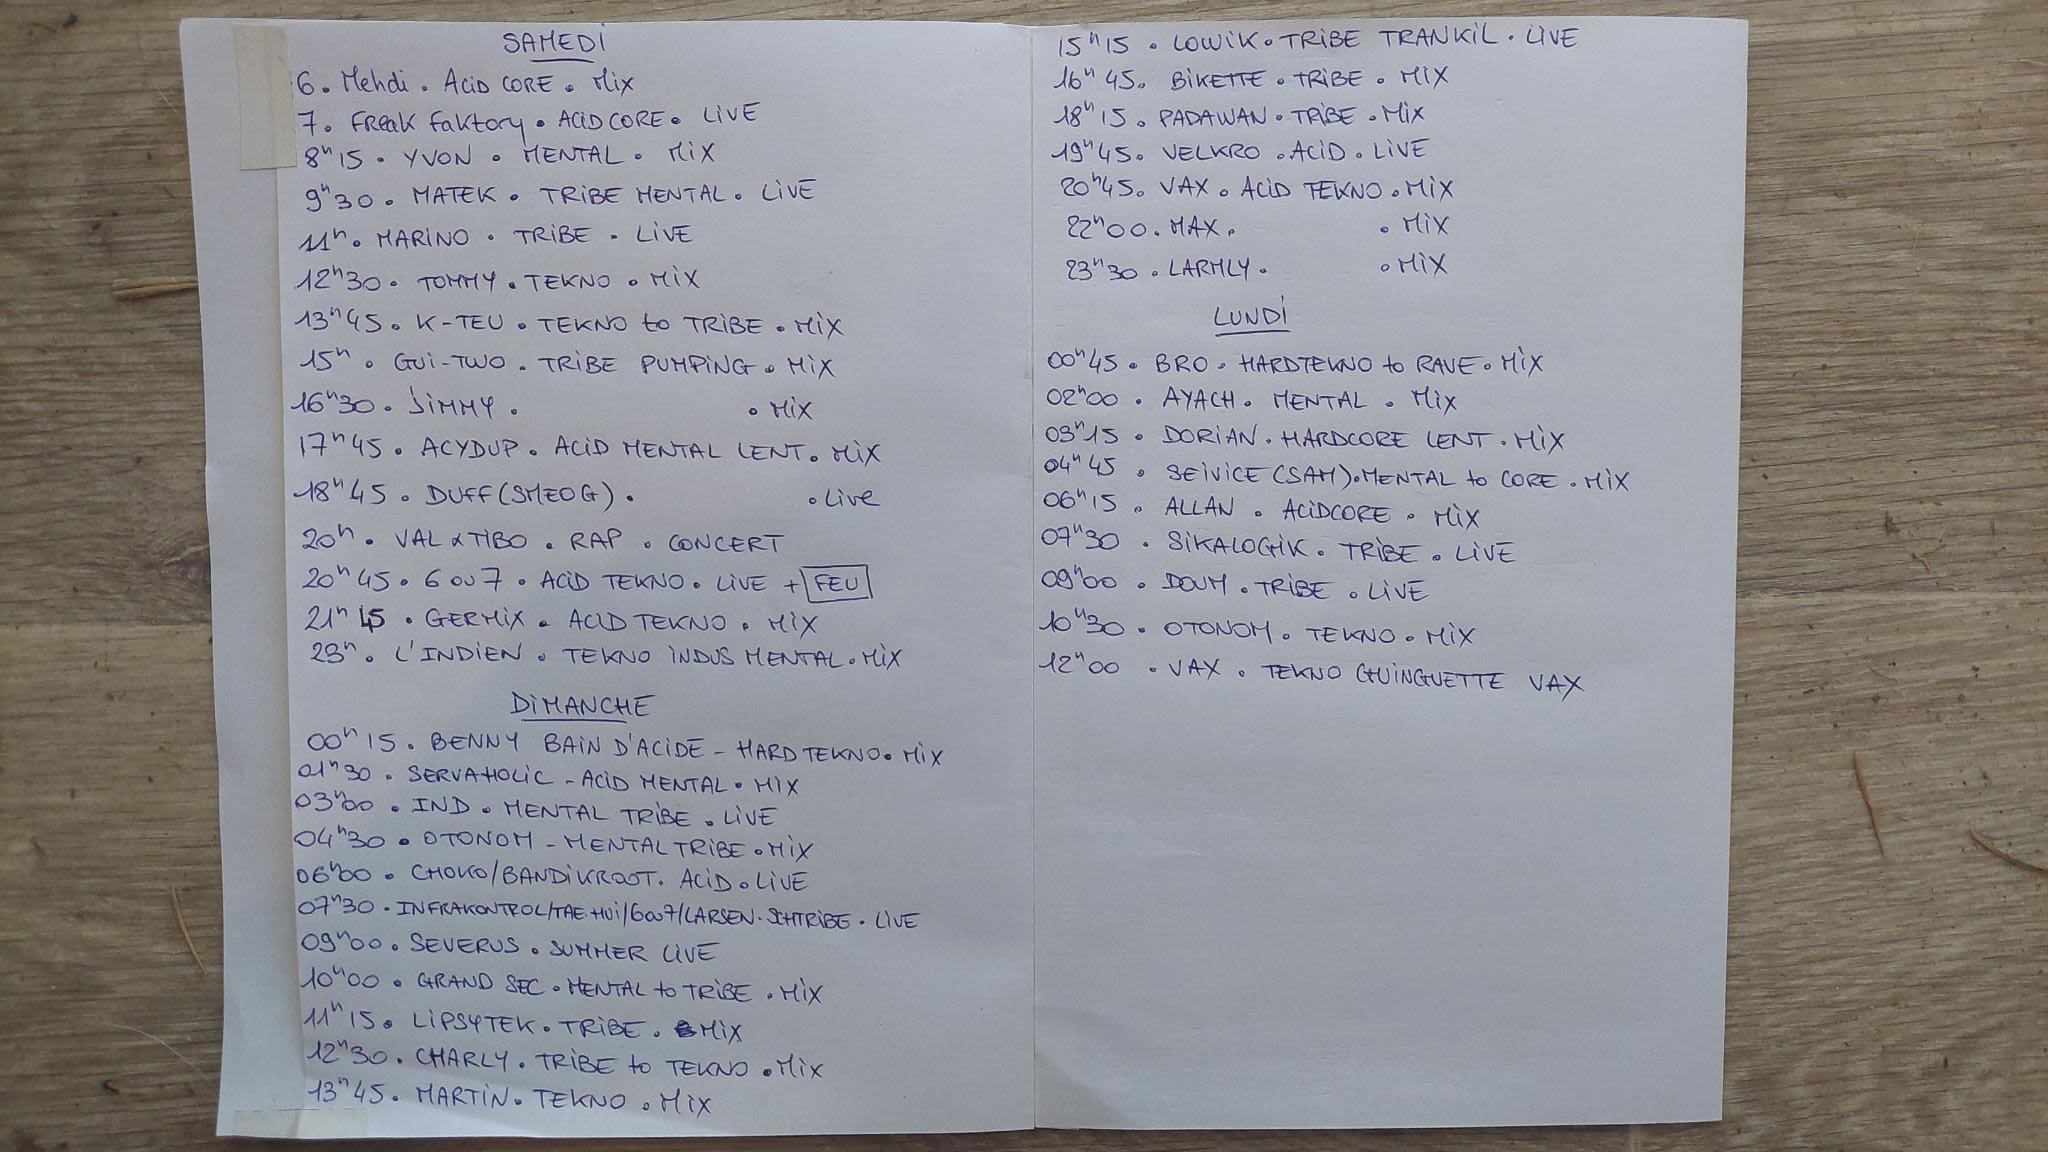 SAMEDI
6. Mehdi. ACID CORE. MIX
7. FREAK FAKTORY. ACID CORE. LIVE
8h15. YVON. MENTAL. MIX
9h30. MATEK. TRIBE MENTAL. LIVE
11h. MARINO. TRIBE. LIVE
12h30. TOMMY. TEKNO. MIX
13h45. K-TEU. TEKNO to TRIBE. MIX
15h. GUI-TWO. TRIBE PUMPING. MIX
16h30. JIMMY. . MIX
17h45. ACYDUP. ACID MENTAL LENT. MIX
18h45. DUFF (SMEOG). . LIVE
20h. VAL & TIBO. RAP. CONCERT
20h45. 6 OU 7. ACID TEKNO. LIVE + FEU
21h45. GERMIX. ACID TEKNO. MIX
23h. L'INDIEN. TEKNO INDUS MENTAL. MIX
DIMANCHE
00h15. BENNY BAIN D'ACIDE - HARD TEKNO. MIX
01h30. SERVAHOLIC - ACID MENTAL. MIX
03h00. IND. MENTAL TRIBE. LIVE
04h30. OTONOM - MENTAL TRIBE. MIX
06h00. CHOKO/BANDIKROOT. ACID. LIVE
07h30. INFRAKONTROL/TAE.HUI/6ou7/LARSEN. SCHTRIBE. LIVE
09h00. SEVERUS. SUMMER LIVE
10h00. GRAND SEC. MENTAL to TRIBE. MIX
11h15. LIPSYTEK. TRIBE. MIX
12h30. CHARLY. TRIBE to TEKNO. MIX
13h45. MARTIN. TEKNO. MIX
15h15. LOWIK. TRIBE TRANKIL. LIVE
16h45. BIKETTE. TRIBE. MIX
18h15. PADAWAN. TRIBE. MIX
19h45. VELKRO. ACID. LIVE
20h45. VAX. ACID TEKNO. MIX
22h00. MAX. . MIX
23h30. LARMLY. . MIX
LUNDI
00h45. BRO. HARDTEKNO to RAVE. MIX
02h00. AYACH. MENTAL. MIX
03h15. DORIAN. HARDCORE LENT. MIX
04h45. SEIVICE (SAM). MENTAL to CORE. MIX
06h15. ALLAN. ACIDCORE. MIX
07h30. SIKALOGIK. TRIBE. LIVE
09h00. DOUM. TRIBE. LIVE
10h30. OTONOM. TEKNO. MIX
12h00. VAX. TEKNO GUINGUETTE VAX